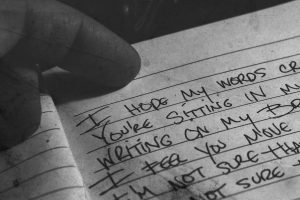 I HOPE MY WORDS
YOU'RE SITTING IN M
WRITING ON MY
I FEEL YOU MOVE
I'M NOT SURE THA
NOT SURE